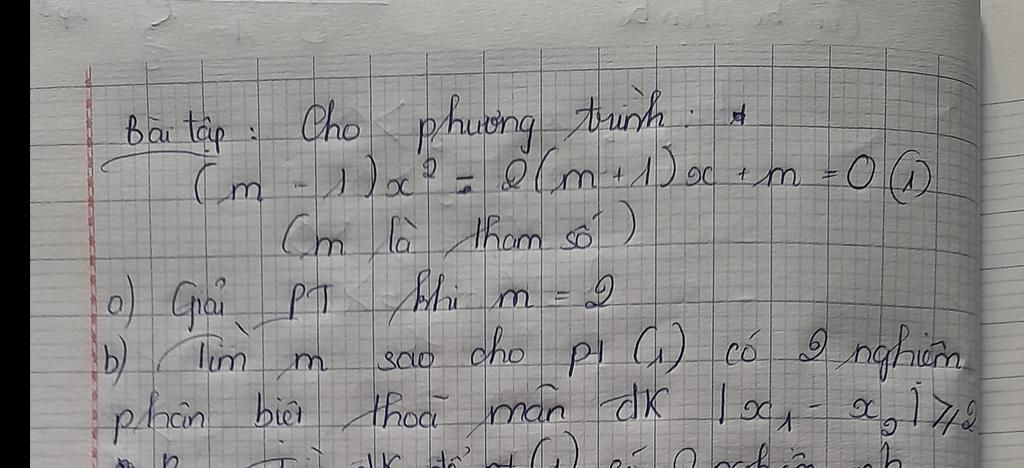 Bài tập : Cho phương trình :
(m - 1)x² = 2(m+1)x + m = 0 (1)
(m là tham số)
a) Giải PT khi m = 2
b) Tìm m sao cho pt (1) có 2 nghiệm
phân biệt thoả mãn đk |x₁ - x₂| ≥ 2